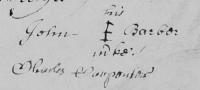 his
John ‡ Barber
marke
Charles Carpenter